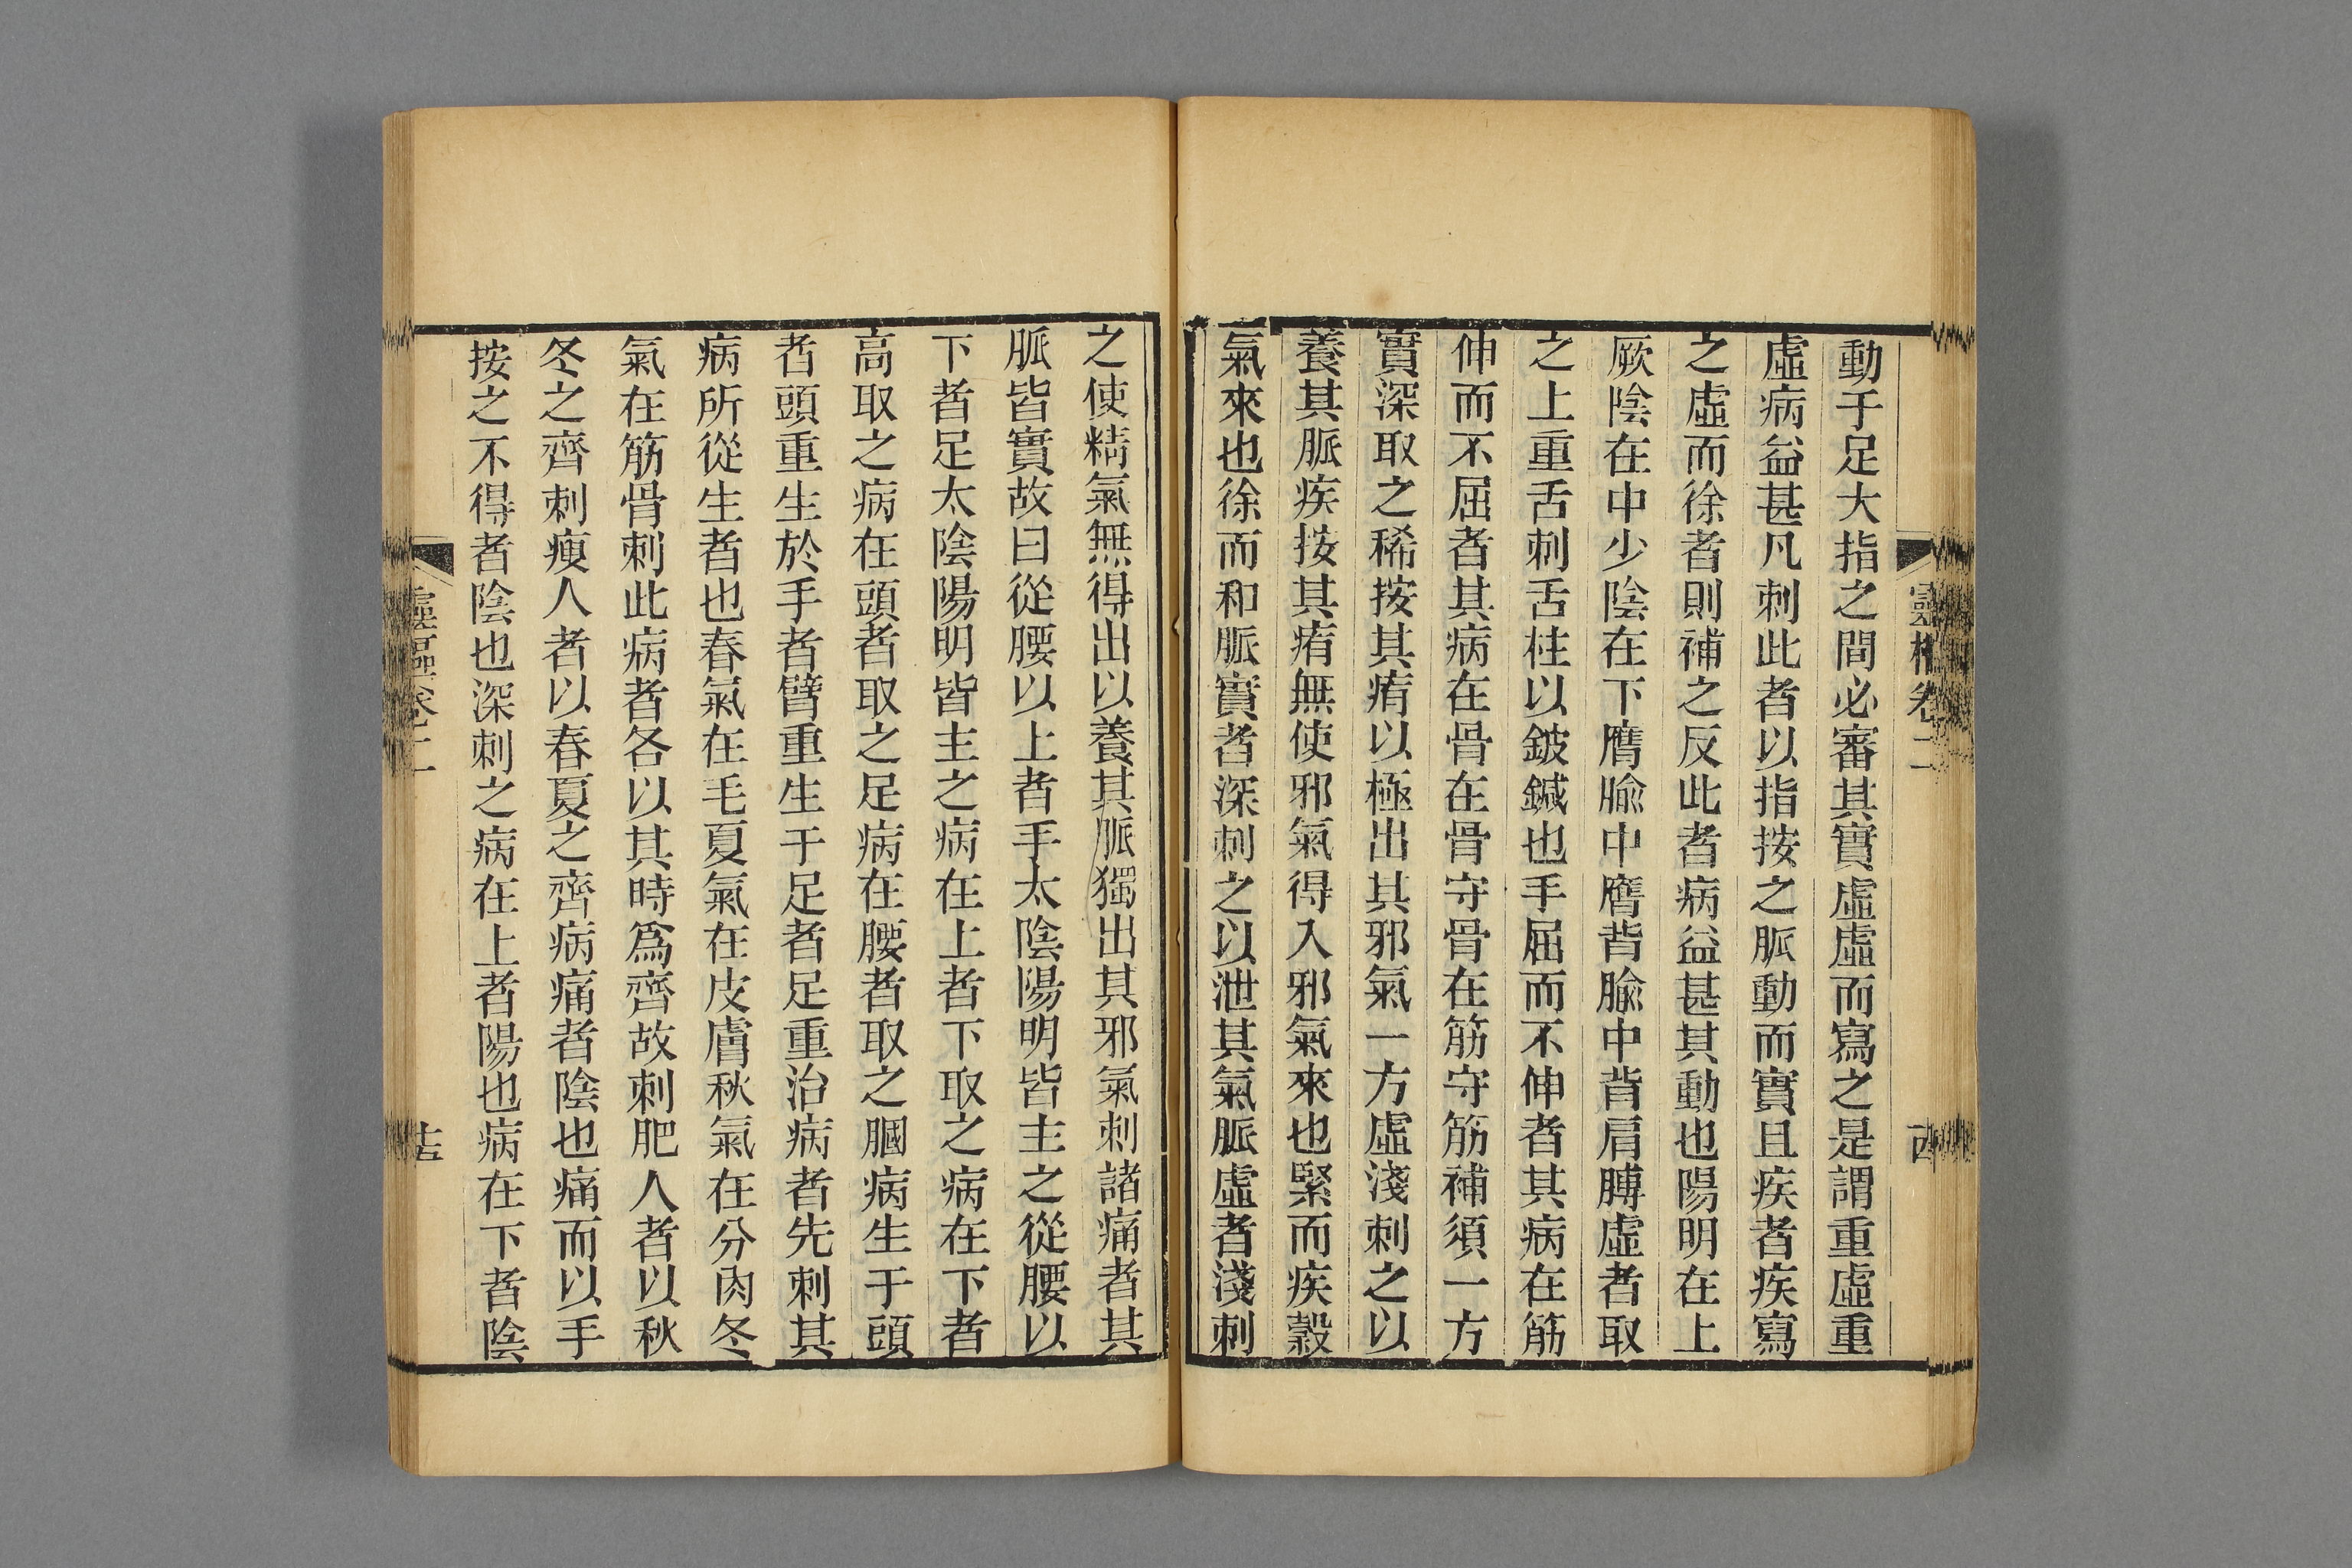 動于足大指之間必審其實虛虛而寫之是謂重虛重
虛病益甚凡刺此者以指按之脈動而實且疾者疾寫
之虛而徐者則補之反此者病益甚其動也陽明在上
厥陰在中少陰在下膺腧中膺背腧中背肩膊虛者取
之上重舌刺舌柱以鈹鍼也手屈而不伸者其病在筋
伸而不屈者其病在骨在骨守骨在筋守筋補須一方
實深取之稀按其痏以極出其邪氣一方虛淺刺之以
養其脈疾按其痏無使邪氣得入邪氣來也緊而疾穀
氣來也徐而和脈實者深刺之以泄其氣脈虛者淺刺
靈樞卷二
之使精氣無得出以養其脈獨出其邪氣刺諸痛者其
脈皆實故曰從腰以上者手太陰陽明皆主之從腰以
下者足太陰陽明皆主之病在上者下取之病在下者
高取之病在頭者取之足病在腰者取之膕病生于頭
者頭重生於手者臂重生于足者足重治病者先刺其
病所從生者也春氣在毛夏氣在皮膚秋氣在分肉冬
氣在筋骨刺此病者各以其時爲齊故刺肥人者以秋
冬之齊刺瘦人者以春夏之齊病痛者陰也痛而以手
按之不得者陰也深刺之病在上者陽也病在下者陰